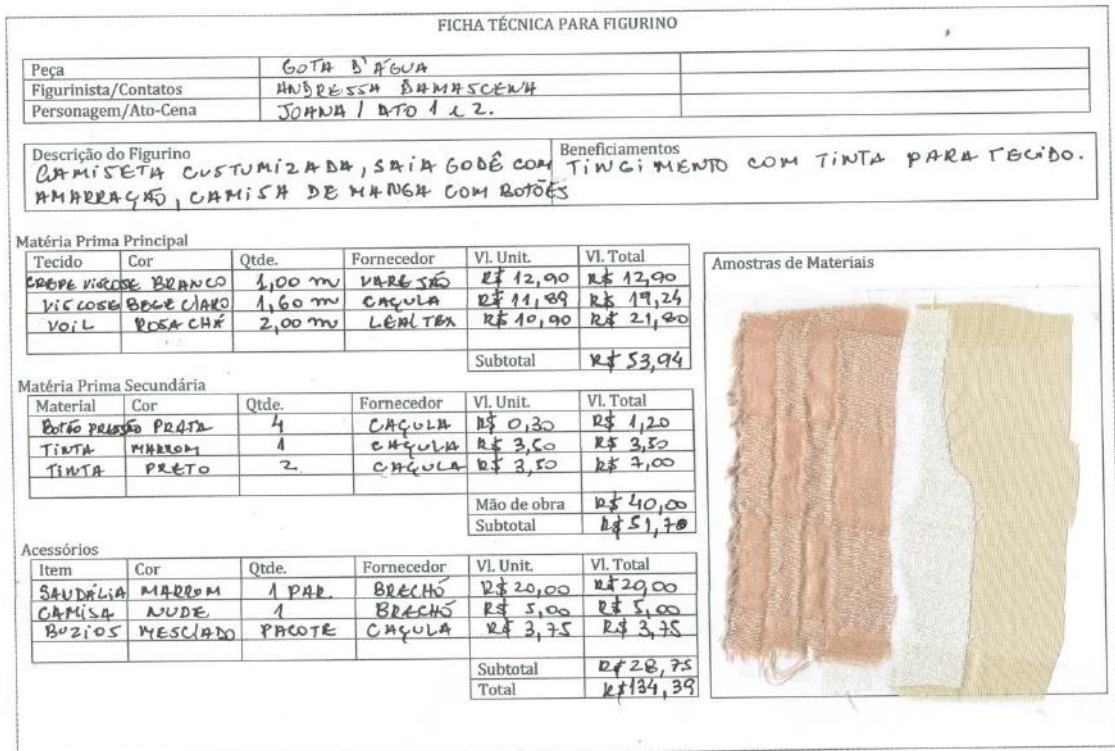 FICHA TÉCNICA PARA FIGURINO
Peça GOTA D'ÁGUA
Figurinista/Contatos ANDRESSA DAMASCENA
Personagem/Ato-Cena JOANA / ATO 1 e 2.
Descrição do Figurino
CAMISETA CUSTUMIZADA, SAIA GODÊ COM
AMARRAÇÃO, CAMISA DE MANGA COM BOTÕES
Beneficiamentos
TINGIMENTO COM TINTA PARA TECIDO.
Matéria Prima Principal
Tecido Cor Qtde. Fornecedor Vl. Unit. Vl. Total
CREPE VISCOSE BRANCO 1,00 m VAREJÃO R$ 12,90 R$ 12,90
VISCOSE BEGE CLARO 1,60 m CAÇULA R$ 11,89 R$ 19,24
VOIL ROSA CHÁ 2,00 m LEALTEX R$ 10,90 R$ 21,80
Subtotal R$ 53,94
Matéria Prima Secundária
Material Cor Qtde. Fornecedor Vl. Unit. Vl. Total
BOTÃO PRESSÃO PRATA 4 CAÇULA R$ 0,30 R$ 1,20
TINTA MARROM 1 CAÇULA R$ 3,50 R$ 3,50
TINTA PRETO 2 CAÇULA R$ 3,50 R$ 7,00
Mão de obra R$ 40,00
Subtotal R$ 51,70
Acessórios
Item Cor Qtde. Fornecedor Vl. Unit. Vl. Total
SAUDÁLIA MARROM 1 PAR. BRECHÓ R$ 20,00 R$ 20,00
CAMISA NUDE 1 BRECHÓ R$ 5,00 R$ 5,00
BUZIOS MESCLADO PACOTE CAÇULA R$ 3,75 R$ 3,75
Subtotal R$ 28,75
Total R$ 134,39
Amostras de Materiais